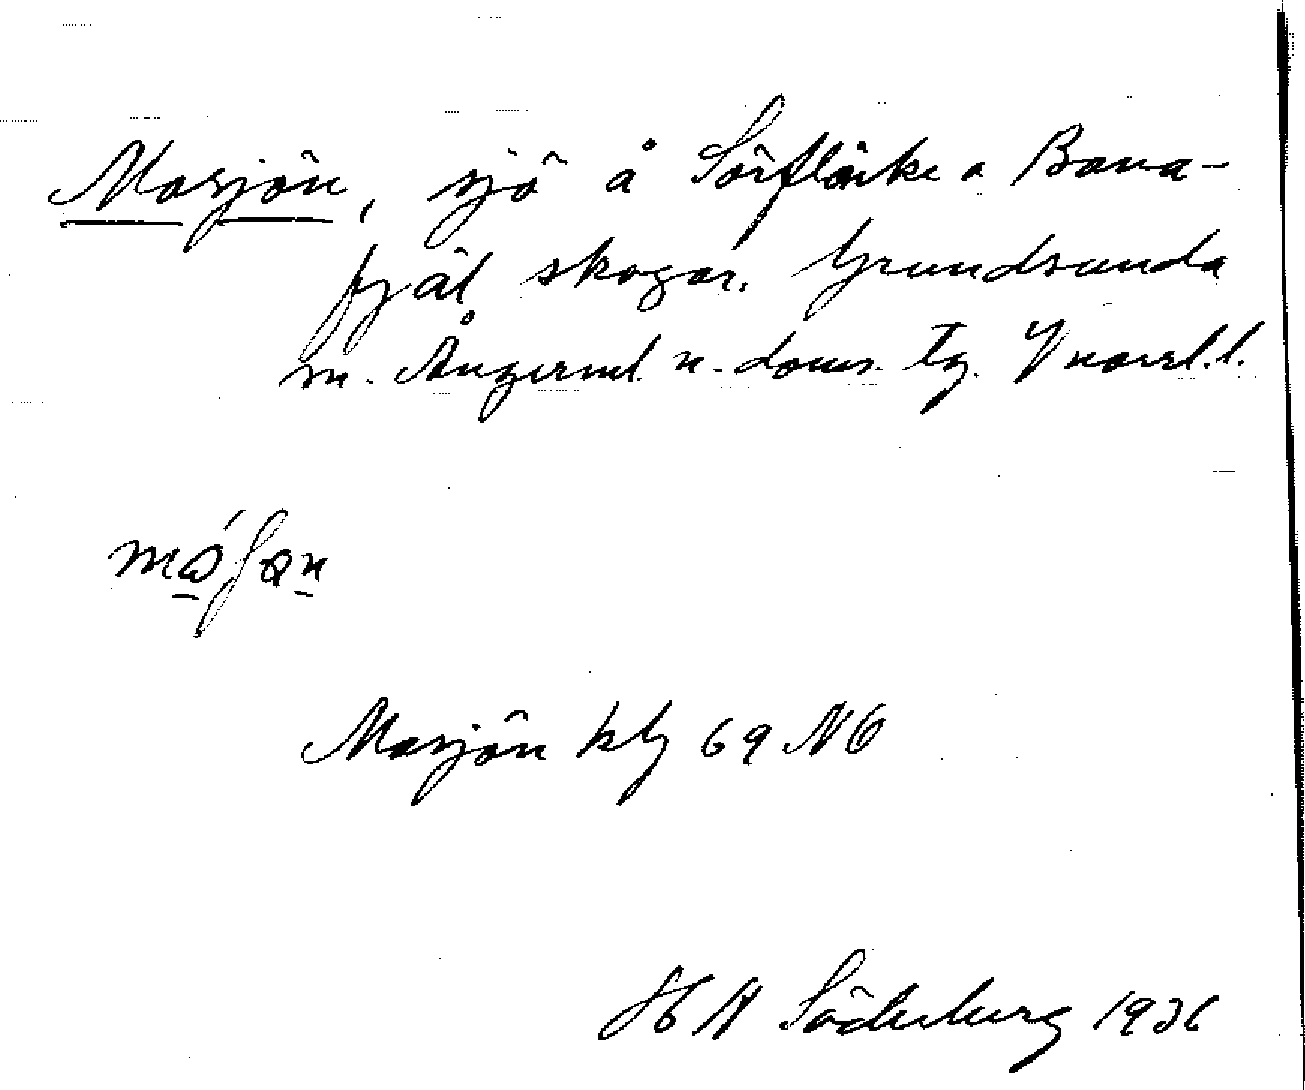 Masjön, sjö å Sörflärke o Bana-
fjäl skogar. Grundsunda
sn. Ångerml. n. doms. Tg. Y norrl. l.
Masjön kbl 69 NO
H A Söderberg 1936